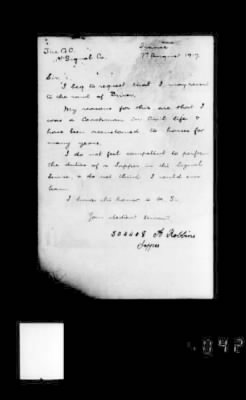 France
The O.C.
7th August 1917
N Signal Co.
Sir,
I beg to request that I may revert
to the rank of Driver.
My reasons for this are that I
was a Coachman in Civil life &
have been accustomed to horses for
many years.
I do not feel competent to perform
the duties of a Sapper in the Signal
Service, & do not think I could ever
learn.
I have the honor to be, Sir
Your obedient Servant
504408 A Robbins
Sapper
4042